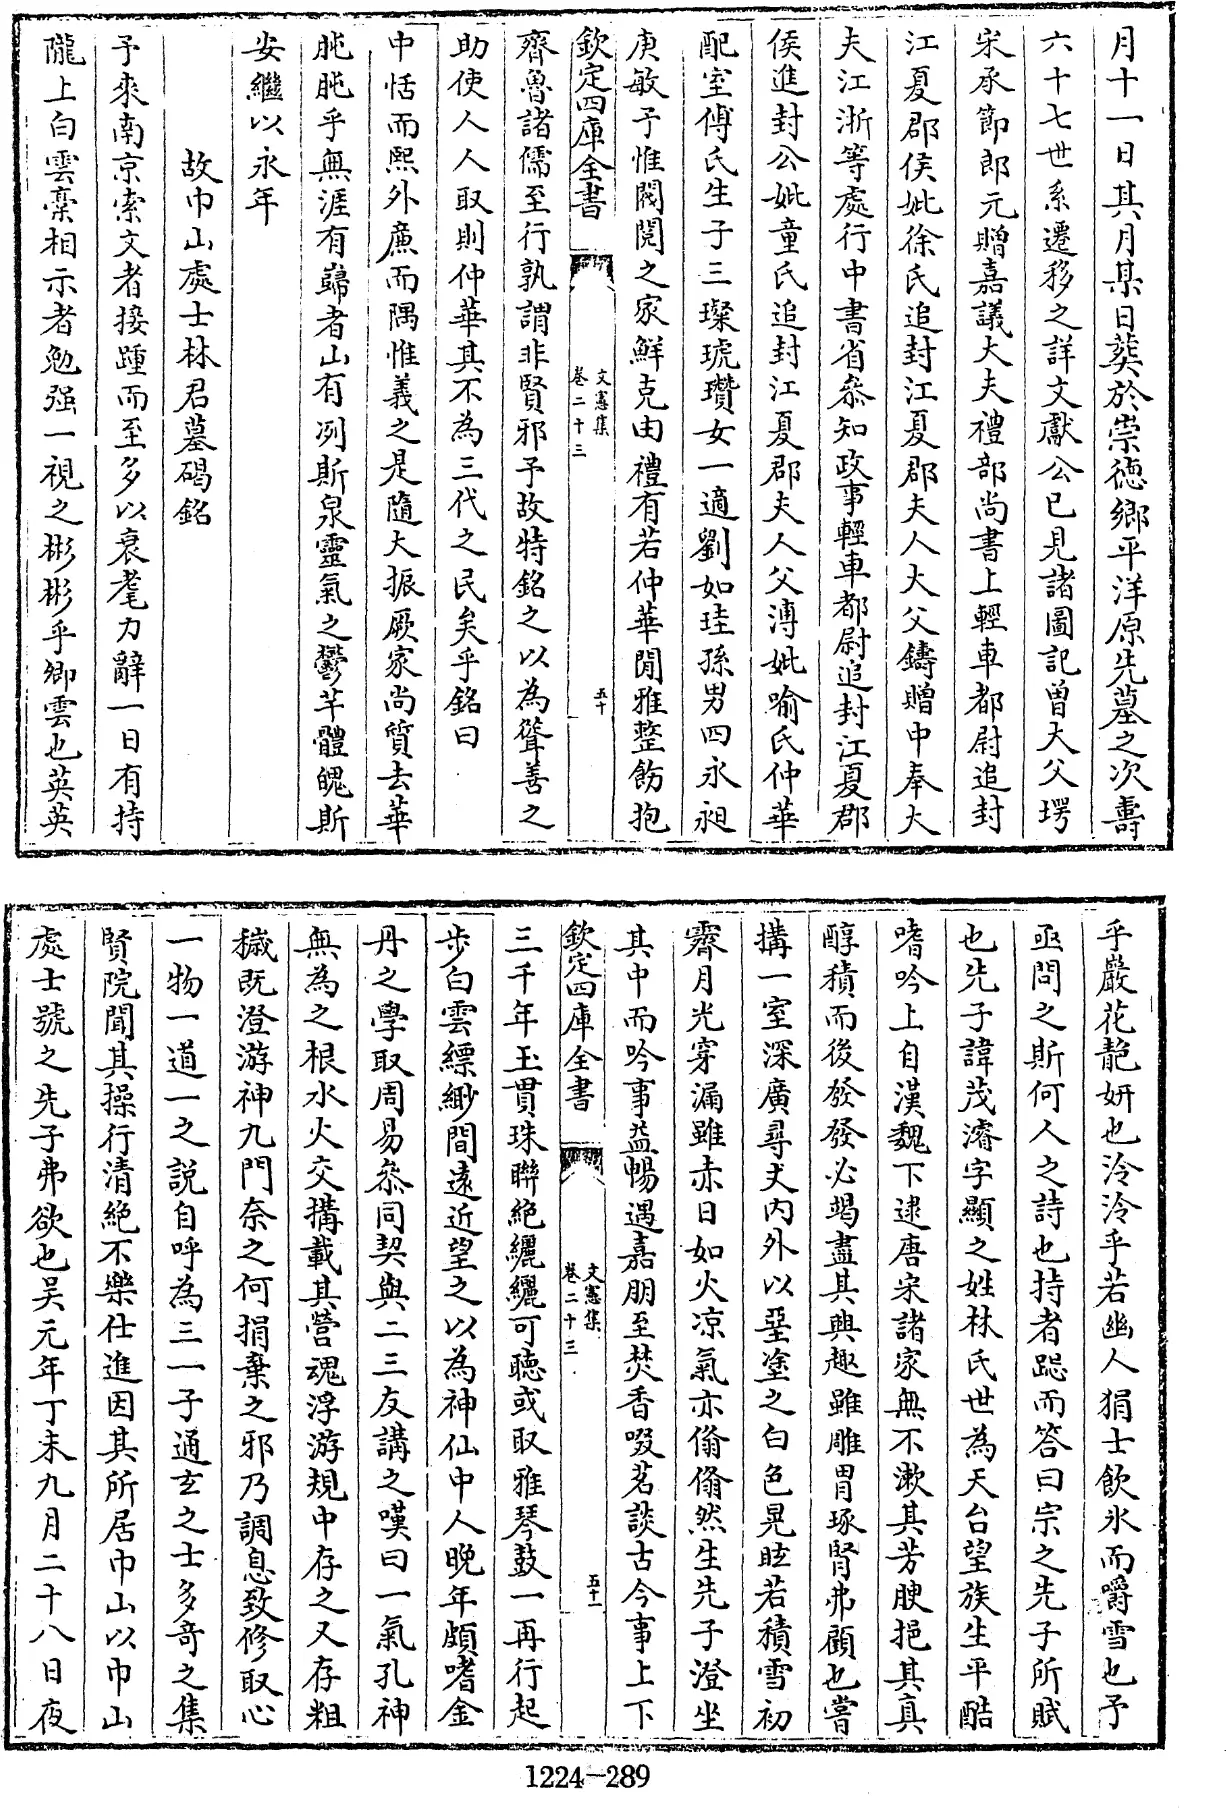 月十一日其月某日葬於崇徳鄉平洋原先墓之次壽
六十七世系遷移之詳文獻公已見諸圖記曽大父堮
宋承節郎元贈嘉議大夫禮部尚書上輕車都尉追封
江夏郡侯妣徐氏追封江夏郡夫人大父鑄贈中奉大
夫江浙等處行中書省叅知政事輕車都尉追封江夏郡
侯進封公妣童氏追封江夏郡夫人父溥妣喻氏仲華
配室傅氏生子三璨琥瓚女一適劉如珪孫男四永昶
庚敏予惟閥閱之家鮮克由禮有若仲華閒雅整飭抱
欽定四庫全書
文憲集
卷二十三
五十
齊魯諸儒至行孰謂非賢邪予故特銘之以為聳善之
助使人人取則仲華其不為三代之民矣乎銘曰
中恬而熙外廉而隅惟義之是隨大振厥家尚質去華
肫肫乎無涯有巋者山有冽斯泉靈氣之鬱芊體魄斯
安繼以永年
故巾山處士林君墓碣銘
予來南京索文者接踵而至多以衰耄力辭一日有持
隴上白雲稾相示者勉强一視之彬彬乎卿雲也英英
乎巖花靘妍也泠泠乎若幽人狷士飲氷而嚼雪也予
亟問之斯何人之詩也持者跽而答曰宗之先子所賦
也先子諱茂濬字顯之姓林氏世為天台望族生平酷
嗜吟上自漢魏下逮唐宋諸家無不漱其芳腴挹其真
醇積而後發發必竭盡其興趣雖雕胃琢腎弗顧也嘗
搆一室深廣尋丈内外以堊塗之白色晃眩若積雪初
霽月光穿漏雖赤日如火凉氣亦翛翛然生先子澄坐
其中而吟事益暢遇嘉朋至焚香啜茗談古今事上下
欽定四庫全書
文憲集
卷二十三
五十一
三千年玉貫珠聯絶纚纚可聴或取雅琴鼓一再行起
步白雲縹緲間逺近望之以為神仙中人晚年頗嗜金
丹之學取周易叅同契與二三友講之嘆曰一氣孔神
無為之根水火交搆載其營魂浮游規中存之又存粗
穢既澄游神九門奈之何捐棄之邪乃調息致修取心
一物一道一之説自呼為三一子通玄之士多竒之集
賢院聞其操行清絶不樂仕進因其所居巾山以巾山
處士號之先子弗欲也吴元年丁未九月二十八日夜
1224-289